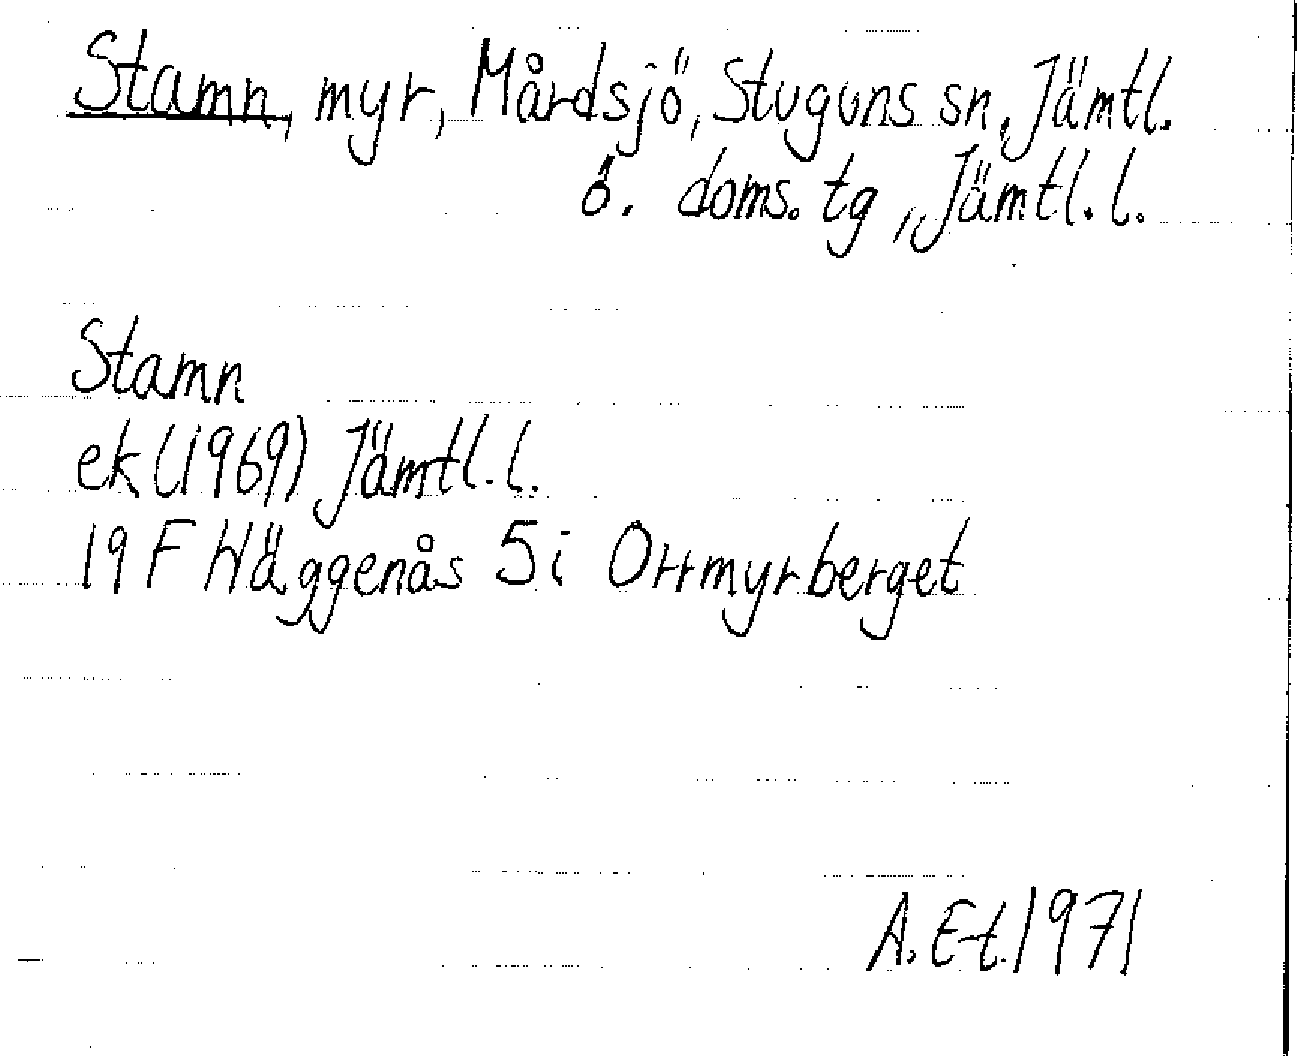 Stamn, myr, Mårdsjö, Stuguns sn, Jämtl.
ö. doms. tg, Jämtl. l.
Stamn
ek (1969) Jämtl. l.
19 F Häggenås 5 i Orrmyrberget
A. Et. 1971